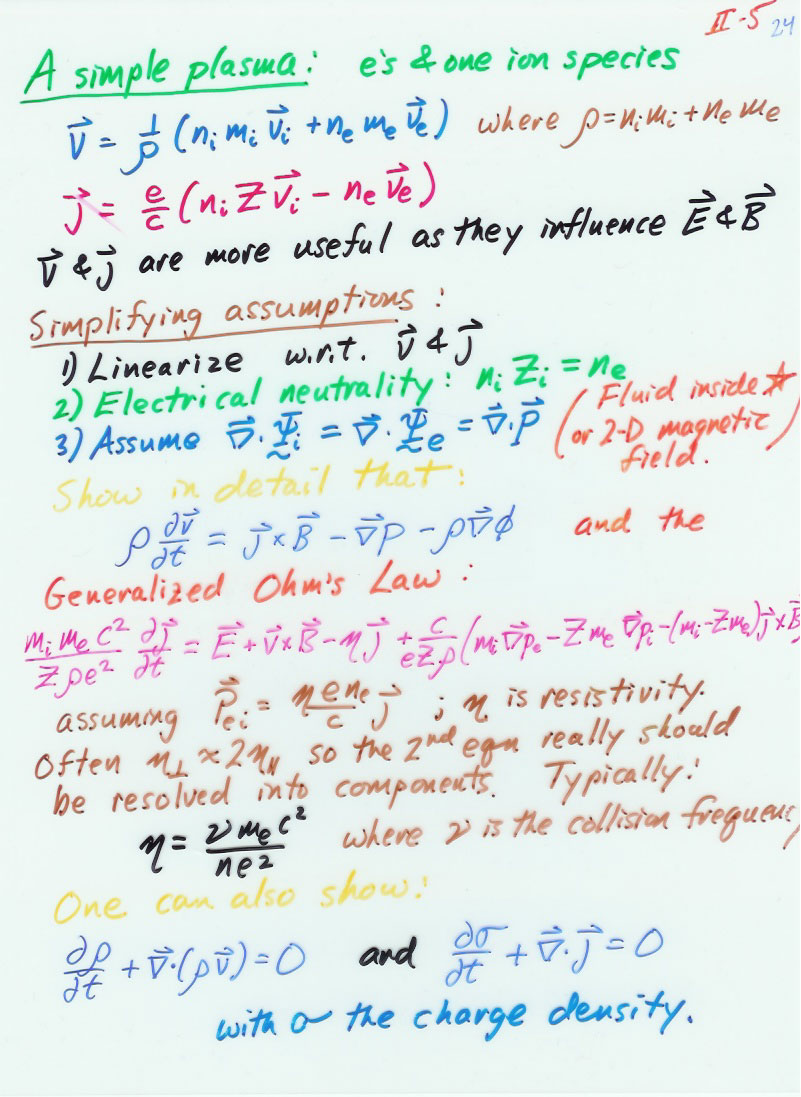 II-5 24
A simple plasma: e's & one ion species
V⃗ = 1/ρ (nᵢ mᵢ v⃗ᵢ + nₑ mₑ v⃗ₑ) where ρ = nᵢmᵢ + nₑ mₑ
j⃗ = e/c (nᵢ Z v⃗ᵢ − nₑ v⃗ₑ)
V⃗ & j⃗ are more useful as they influence E⃗ & B⃗
Simplifying assumptions:
1) Linearize w.r.t. v⃗ & j⃗
2) Electrical neutrality: nᵢ Zᵢ = nₑ
3) Assume ∇⃗·Ψ̰ᵢ = ∇⃗·Ψ̰ₑ = ∇⃗·P⃗ (Fluid inside ☆
or 2-D magnetic)
field.
Show in detail that:
ρ ∂v⃗/∂t = j⃗ × B⃗ − ∇⃗p − ρ∇⃗ϕ and the
Generalized Ohm's Law:
mᵢ mₑ c²/Zρe² ∂j⃗/∂t = E⃗ + v⃗×B⃗ − ηj⃗ + c/eZρ (mᵢ∇⃗pₑ − Zmₑ ∇⃗pᵢ − (mᵢ−Zmₑ)j⃗×B⃗
assuming P⃗ₑᵢ = ηenₑ/c j⃗ ; η is resistivity.
Often η⊥ ≈ 2η∥ so the 2nd eqn really should
be resolved into components. Typically:
η = νmₑc²/ne² where ν is the collision frequency
One can also show:
∂ρ/∂t + ∇⃗·(ρv⃗) = 0 and ∂σ/∂t + ∇⃗·j⃗ = 0
with σ the charge density.